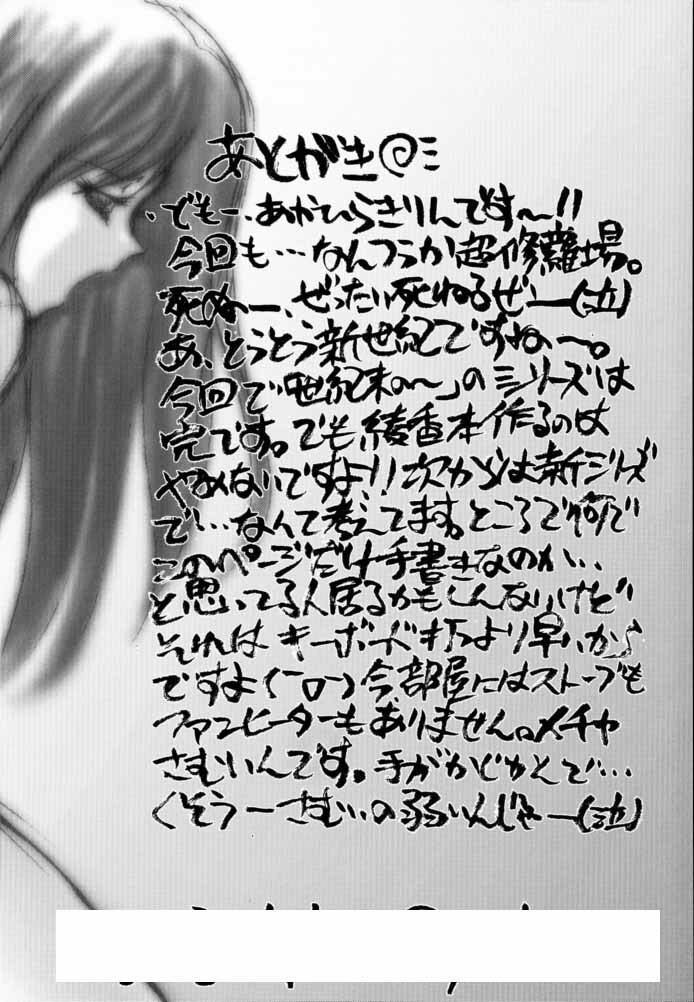 あとがき@ミ
、でもー、あかひらきりんです〜!!
今回も…なんつうか超修羅場。
死ぬー、ぜったい死ねるぜー(泣)
あ、とうとう新世紀ですね〜。
今回で「世紀末の〜」のシリーズは
完です。でも綾香本作るのは
やめないですよ!!次からは新シリーズ
で…なんて考えてます。ところで何で
このページだけ手書きなのか…
と思ってる人居るかもしんないけど
それはキーボード打つより早いから
ですよ(ーロー)今部屋にはストーブも
ファンヒーターもありません。メチャ
さむいんです。手がかじかんで…
くそうーさむいの弱いんじゃー(泣)